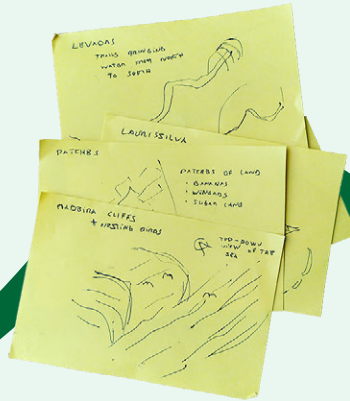 LEVADAS
TRAILS BRINGING
WATER FROM NORTH
TO SOUTH
LAURISSILVA
PATCHES
PATCHES OF LAND
• BANANAS
• VINEYARDS
• SUGAR CANE
MADEIRA CLIFFS
+ NESTING BIRDS
TOP-DOWN
VIEW OF THE
SEA